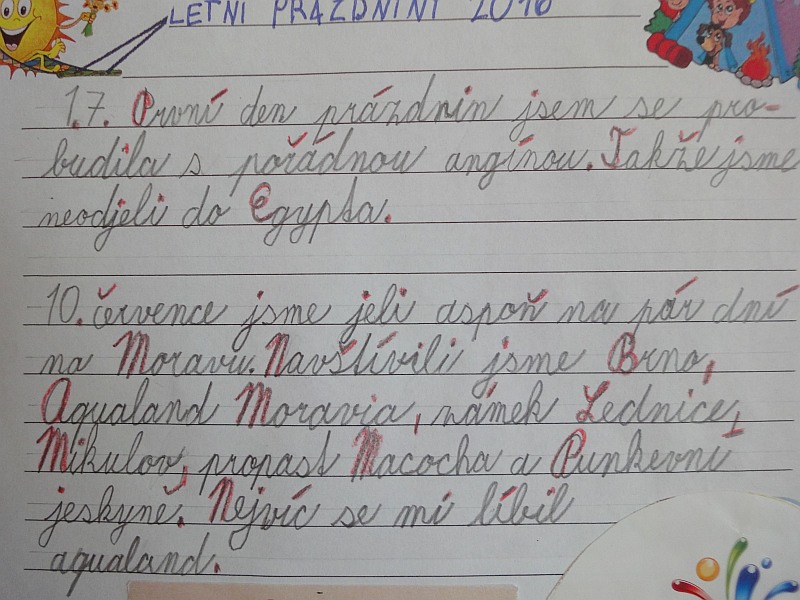 LETNÍ PRÁZDNINY 2016
1.7. První den prázdnin jsem se pro-
budila s pořádnou angínou. Takže jsme
neodjeli do Egypta.
10. července jsme jeli aspoň na pár dní
na Moravu. Navštívili jsme Brno,
Aqualand Moravia, zámek Lednice,
Mikulov, propast Macocha a Punkevní
jeskyně. Nejvíc se mi líbil
aqualand.